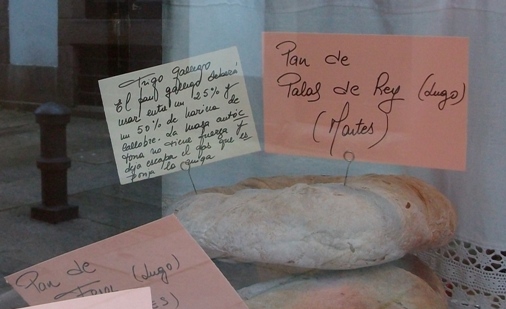 Trigo gallego
El pan gallego deberá
usar entre un 25% y
un 50% de harina de
callobre. La masa autóc
tona no tiene fuerza y
deja escapar el gas que es
ponja la miga
Pan de
Palas de Rey (Lugo)
(Martes)
Pan de
(Lugo)
ES)